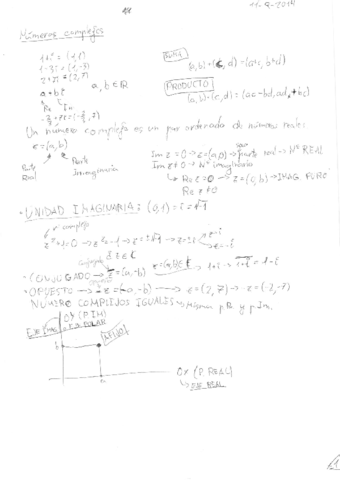 11-9-2018
Números complejos
1+i = (1,1)
1-3i = (1,-3)
2+7i = (2,7)
a+bi a, b ∈ ℝ
Re Im
SUMA
(a,b)+(c,d) = (a+c, b+d)
PRODUCTO
(a,b)·(c,d) = (ac-bd, ad+bc)
Un número complejo es un par ordenado de números reales
z=(a,b)
Parte Real
Parte Imaginaria
Im z=0 → z=(a,0) → parte real → Nº REAL
Im z≠0 → Nº imaginario
Re z=0 → z=(0,b) → IMAG. PURO
Re z≠0
· UNIDAD IMAGINARIA: (0,1)=i=√-1
complejo
z²+1=0 → z²=-1 → z=±√-1 → z=±i
z=i
z=-i
· CONJUGADO → z=(a,-b) 1+i → 1-i
· OPUESTO → -z=(-a,-b) → z=(2,7) → -z=(-2,-7)
NÚMERO COMPLEJOS IGUALES → Misma pR y pIm.
OY (P.IM)
EJE IMAG
AFIJO
b
a
OX (P.REAL)
EJE REAL
1